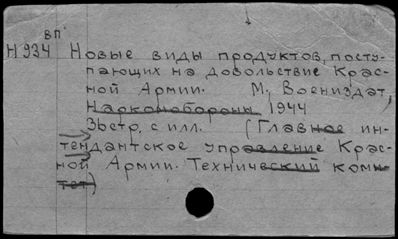 вп
Н934 Новые виды продуктов, посту-
пающих на довольствие Крас-
ной Армии. М., Воениздат,
Наркомобороны, 1944
36стр. с илл. (Главное ин-
тендантское управление Крас-
ной Армии. Технический коми-
тет)